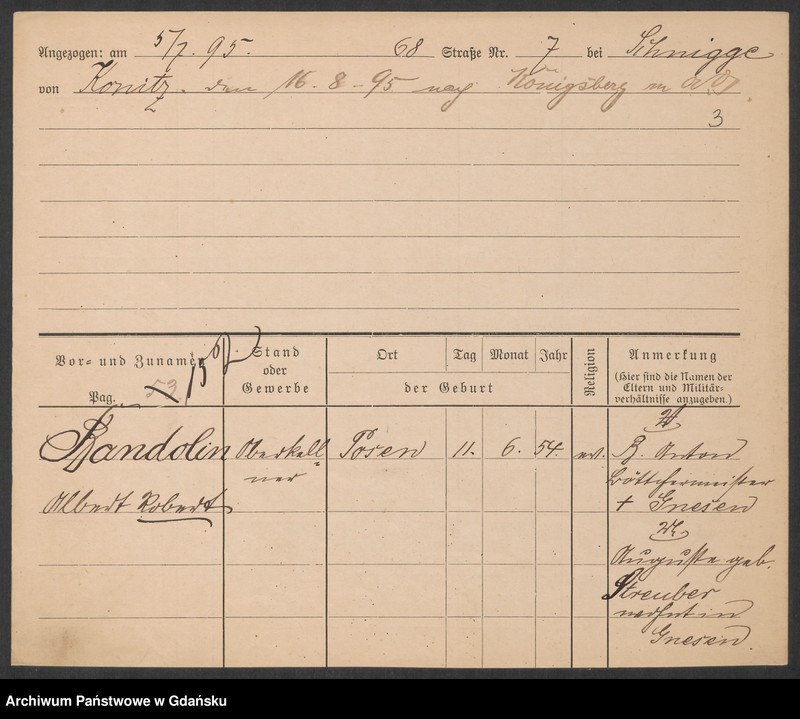 Angezogen: am 5/7. 95. 68 Straße Nr. 7 bei Schnigge
von Konitz. den 16. 8 - 95 nach Königsberg
3
Vor- und Zunamen
Pag. 53
Stand
oder
Gewerbe
Ort Tag Monat Jahr
der Geburt
Religion
Anmerkung
(Hier sind die Namen der
Eltern und Militär-
verhältnisse anzugeben.)
Bandolin Oberkell= Posen 11. 6. 54. ev. B. Anton
ner Böttchermeister
Albert Robert † Gnesen
Auguste geb.
Streuber
wohnt in
Gnesen
Archiwum Państwowe w Gdańsku